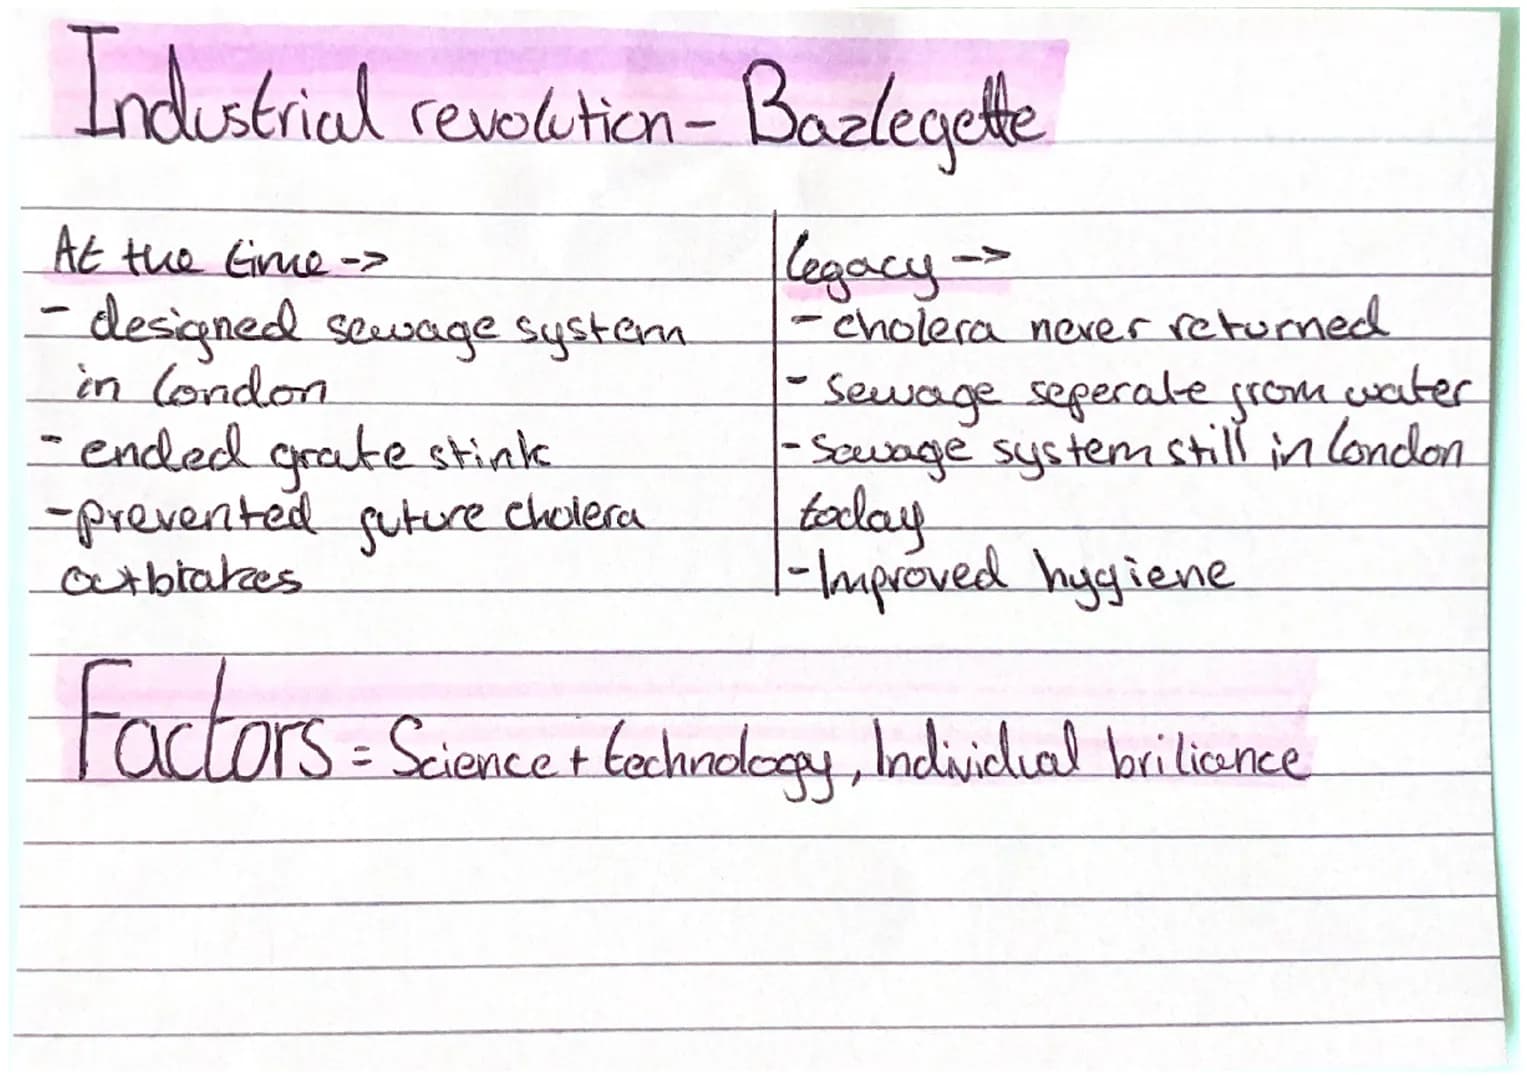 Industrial revolution - Bazlegette
At the time ->
- designed sewage system
in london
- ended grate stink
- prevented future cholera
outbrakes
legacy ->
- cholera never returned
- Sewage seperate from water
- Sewage system still in london
today
- Improved hygiene
Factors = Science + technology, Individual briliance